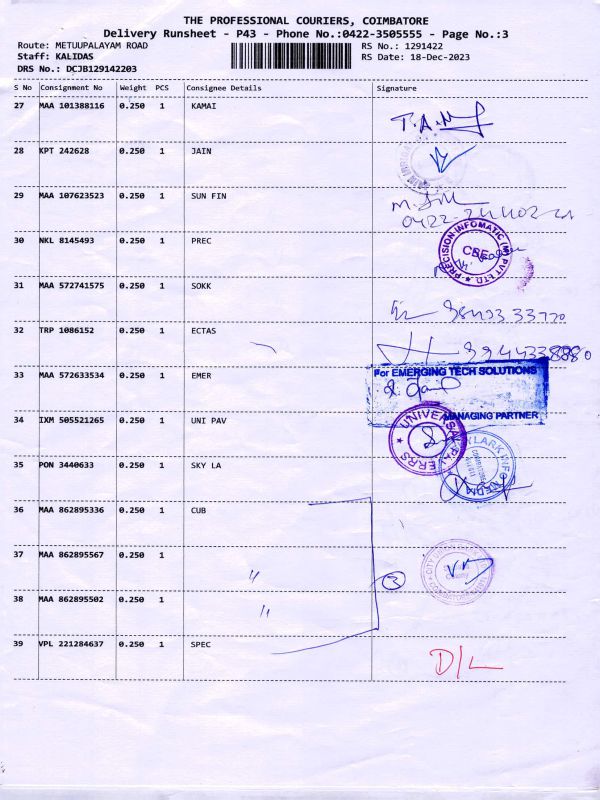 THE PROFESSIONAL COURIERS, COIMBATORE
Delivery Runsheet - P43 - Phone No.:0422-3505555 - Page No.:3
Route: METUUPALAYAM ROAD
RS No.: 1291422
Staff: KALIDAS
RS Date: 18-Dec-2023
DRS No.: DCJB129142203
S No Consignment No Weight PCS Consignee Details Signature
27 MAA 101388116 0.250 1 KAMAI
28 KPT 242628 0.250 1 JAIN
29 MAA 107623523 0.250 1 SUN FIN
30 NKL 8145493 0.250 1 PREC
PRECISION INFOMATIC (M) PVT LTD
CBE
31 MAA 572741575 0.250 1 SOKK
32 TRP 1086152 0.250 1 ECTAS
33 MAA 572633534 0.250 1 EMER
For EMERGING TECH SOLUTIONS
MANAGING PARTNER
34 IXM 505521265 0.250 1 UNI PAV
UNIVERSAL PAVERRS
35 PON 3440633 0.250 1 SKY LA
36 MAA 862895336 0.250 1 CUB
37 MAA 862895567 0.250 1 "
3
38 MAA 862895502 0.250 1 "
39 VPL 221284637 0.250 1 SPEC
D/L